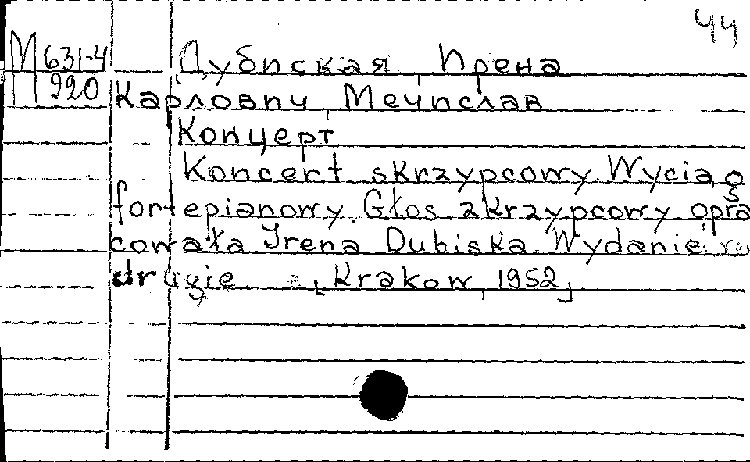 44
М 631-4 Дубиская, Ирена
П 920 Карлович, Мечислав
Концерт
Koncert skrzypcowy. Wyciąg
fortepianowy. Głos zkrzypcowy opra
cowała Irena Dubiska. Wydanie
drugie [Krakow, 1952]